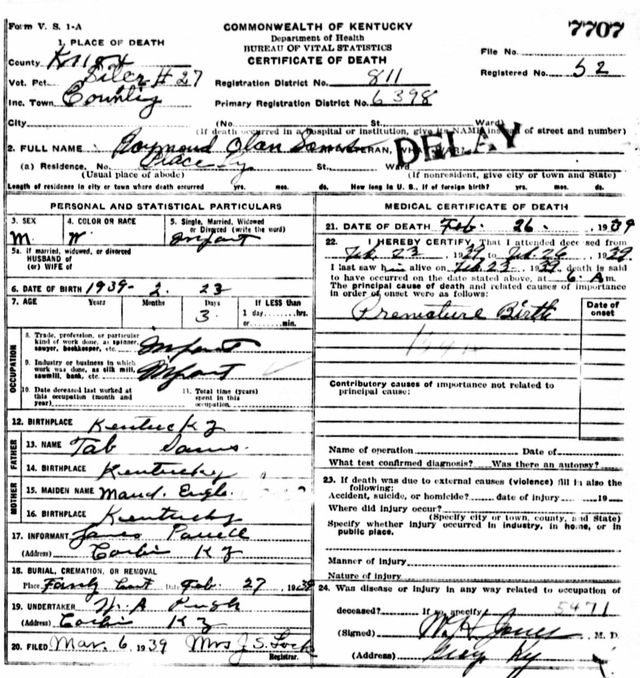 Form V. S. 1-A
COMMONWEALTH OF KENTUCKY
Department of Health
BUREAU OF VITAL STATISTICS
CERTIFICATE OF DEATH
7707
File No.
Registered No. 52
1. PLACE OF DEATH
County Knox
Vot. Pct. Siler #27
Inc. Town County
Registration District No. 811
Primary Registration District No. 6398
City (No. St. Ward)
(If death occurred in a hospital or institution, give its NAME instead of street and number)
2. FULL NAME Raymond Olan
DELEY
(a) Residence. No. St. Ward
(Usual place of abode) (If nonresident, give city or town and State)
Length of residence in city or town where death occurred yrs. mos. ds. How long in U. S., if of foreign birth? yrs. mos. ds.
PERSONAL AND STATISTICAL PARTICULARS
3. SEX 4. COLOR OR RACE 5. Single, Married, Widowed or Divorced (write the word)
M W Infant
5a. If married, widowed, or divorced
HUSBAND of
(or) WIFE of
6. DATE OF BIRTH 1939- 2 23
7. AGE Years Months Days If LESS than
3 1 day hrs.
or min.
OCCUPATION
8. Trade, profession, or particular
kind of work done, as spinner,
sawyer, bookkeeper, etc. Infant
9. Industry or business in which
work was done, as silk mill,
sawmill, bank, etc. Infant
10. Date deceased last worked at
this occupation (month and
year)
11. Total time (years)
spent in this
occupation
12. BIRTHPLACE Kentucky
FATHER
13. NAME Tab Sams
14. BIRTHPLACE Kentucky
MOTHER
15. MAIDEN NAME Maud Engle
16. BIRTHPLACE Kentucky
17. INFORMANT James
(Address) Corbin Ky
18. BURIAL, CREMATION, OR REMOVAL
Place Date Feb 27 1939
19. UNDERTAKER
(Address) Corbin Ky
20. FILED Mar. 6 1939 Mrs J. S.
Registrar.
MEDICAL CERTIFICATE OF DEATH
21. DATE OF DEATH Feb. 26 1939
22. I HEREBY CERTIFY, That I attended deceased from
Feb. 23 1939 to Feb. 26 1939
I last saw him alive on Feb. 23 1939 death is said
to have occurred on the date stated above, at 6. A m.
The principal cause of death and related causes of importance
in order of onset were as follows:
Date of
onset
Premature Birth
Contributory causes of importance not related to
principal cause:
Name of operation Date of
What test confirmed diagnosis? Was there an autopsy?
23. If death was due to external causes (violence) fill in also the
following:
Accident, suicide, or homicide? date of injury 19
Where did injury occur?
(Specify city or town, county, and State)
Specify whether injury occurred in industry, in home, or in
public place.
Manner of injury
Nature of injury
24. Was disease or injury in any way related to occupation of
deceased? If so, specify 5471
(Signed) W. H. Jones M. D.
(Address) Gray Ky